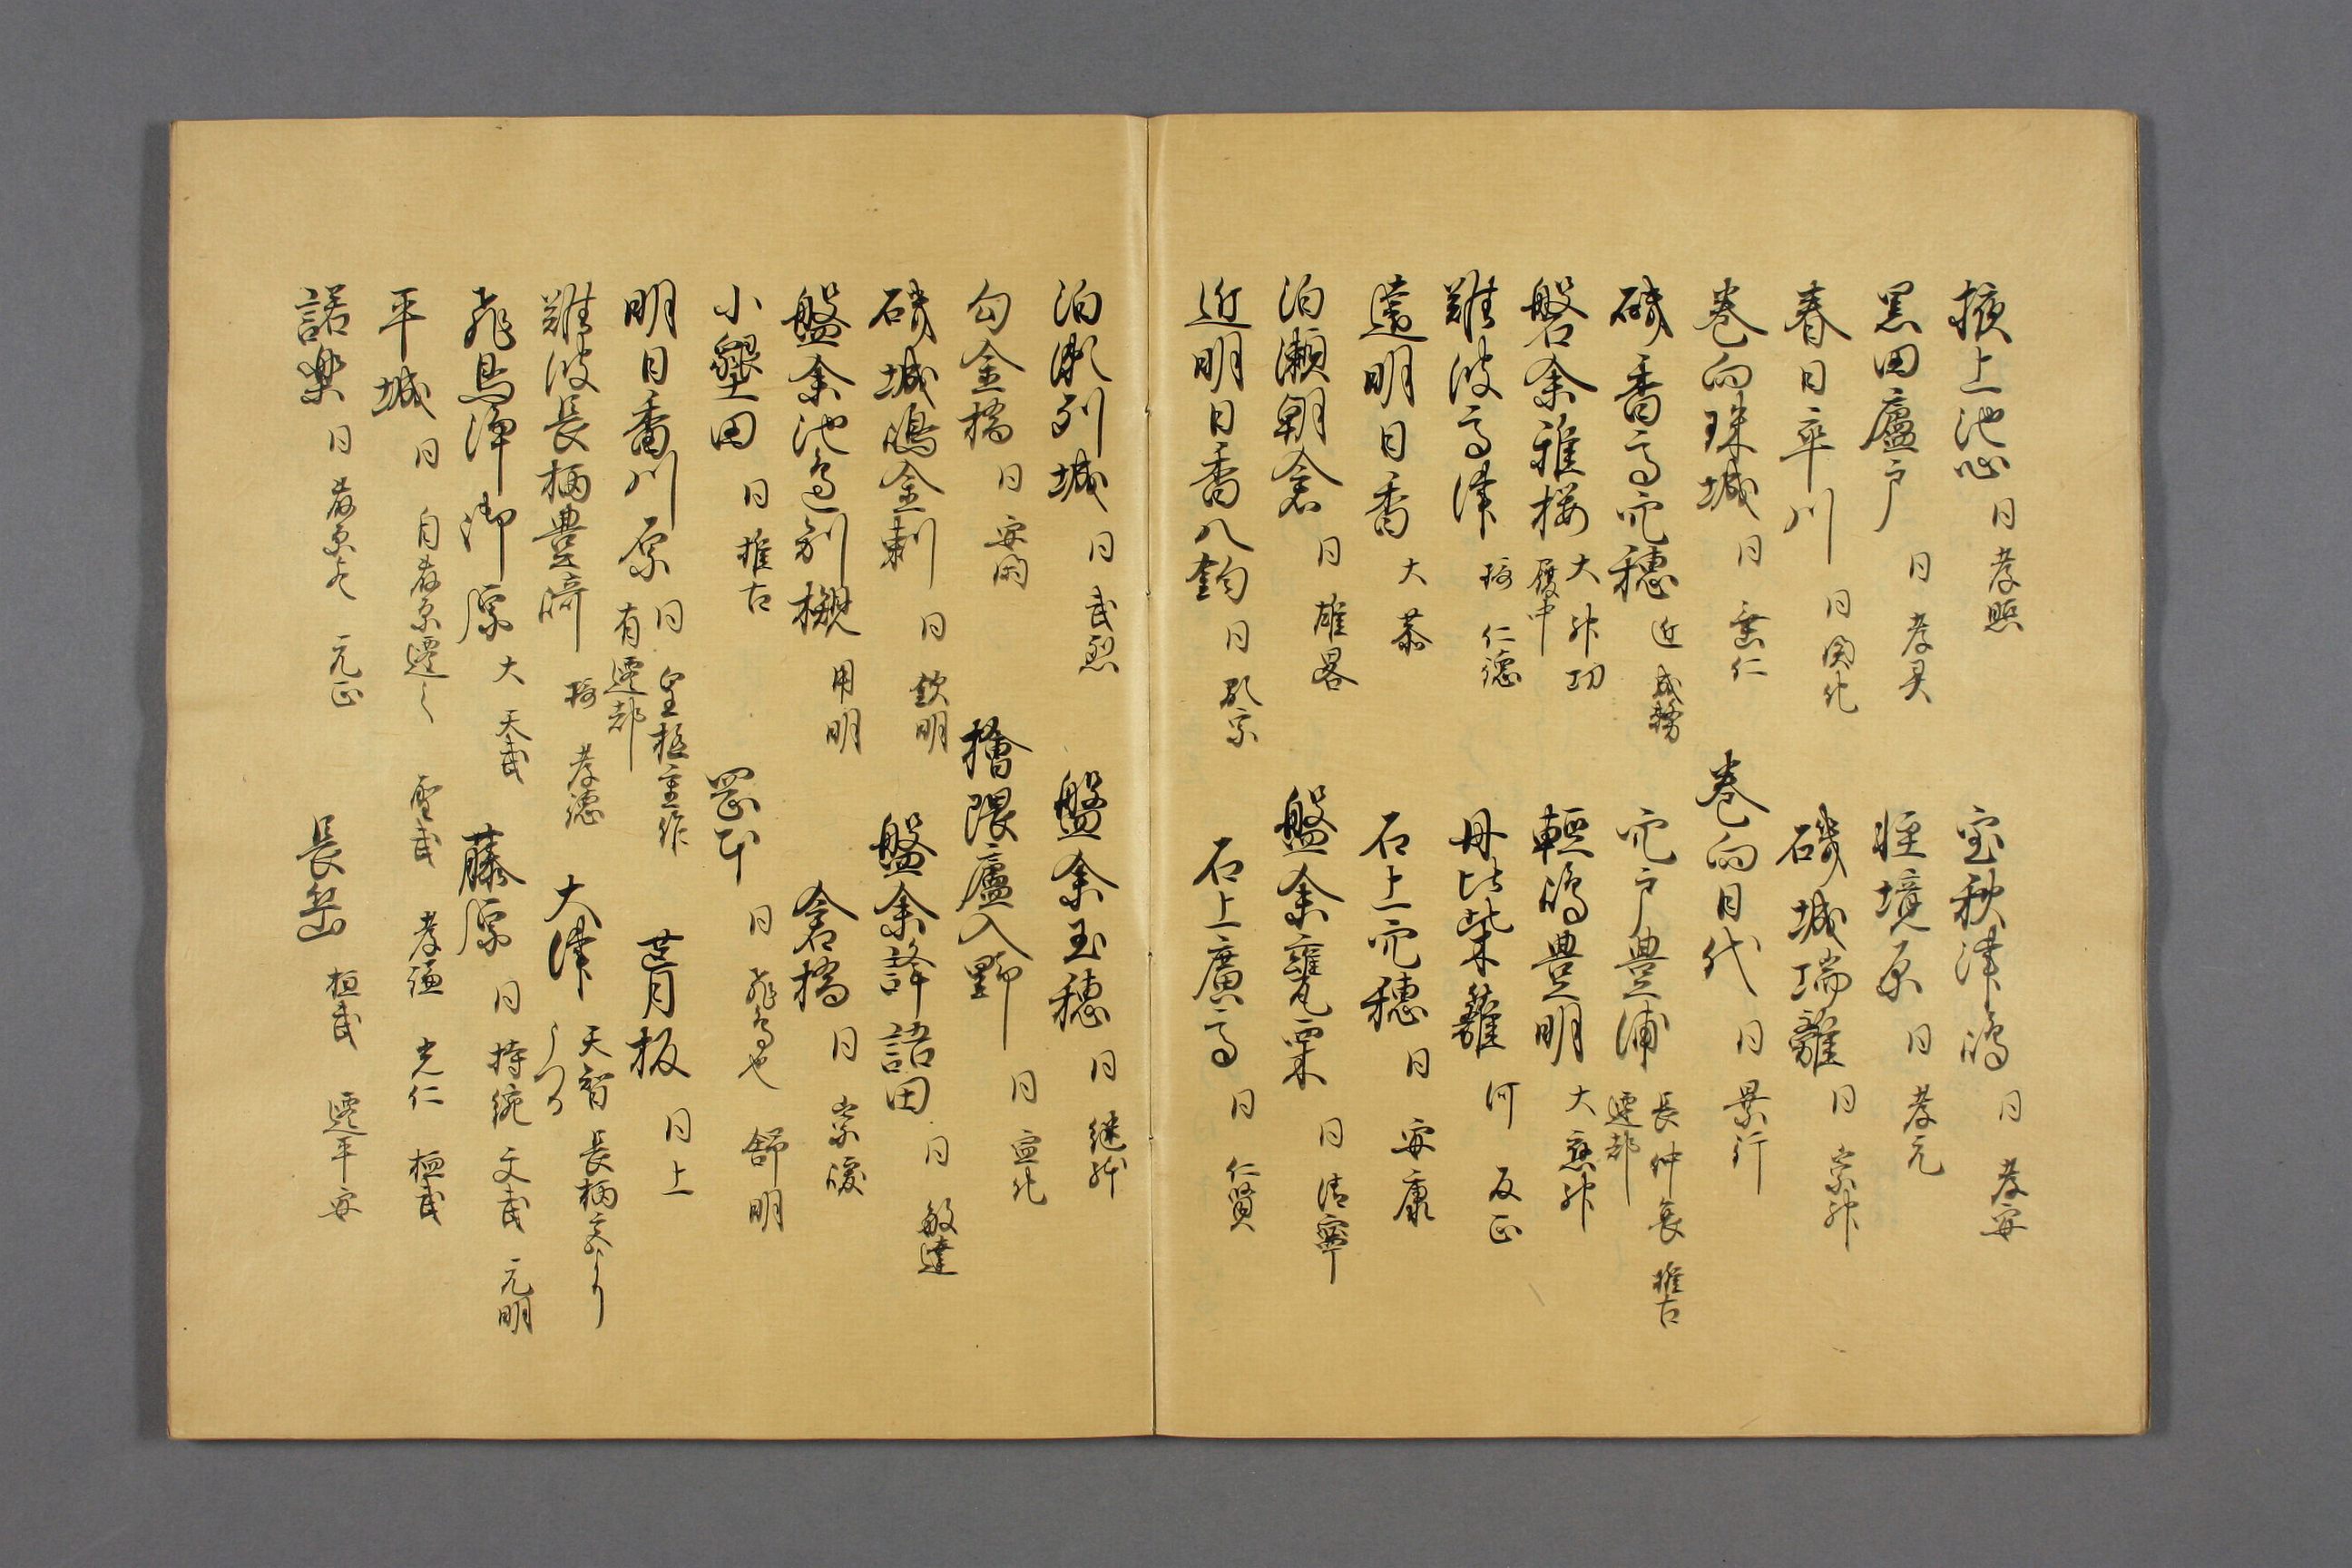 掖上池心 日 孝照 室秋津嶋 日 孝安
黒田廬戸 日 孝灵 軽境原 日 孝元
春日率川 日 開化 磯城瑞籬 日 崇神
巻向珠城 日 垂仁 巻向日代 日 景行
磯香高穴穂 近 成務 穴戸豊浦 長 仲哀 推古 遷都
磐余稚桜 大 神功 履中 軽嶋豊明 大 應神
難波高津 摂 仁徳 丹比柴籬 河 反正
遠明日香 大 恭 石上穴穂 日 安康
泊瀬朝倉 日 雄畧 盤余甕栗 日 清寧
近明日香八釣 日 顕宗 石上廣高 日 仁賢
泊瀬列城 日 武烈 盤余玉穂 日 継体
勾金橋 日 安閑 檜隈廬入野 日 宣化
磯城嶋金刺 日 欽明 盤余譯語田 日 敏達
盤余池邊列槻 用明 倉橋 日 崇峻
小墾田 日 推古 岡本 日 飛鳥也 舒明
明日香川原 日 皇極重祚 有遷都 葺板 日 上
難波長柄豊崎 摂 孝徳 大津 天智 長柄京より うつる
飛鳥浄御原 大 天武 藤原 日 持統 文武 元明
平城 日 自藤原遷之 聖武 孝謙 光仁 桓武
諾楽 日 元正 長岳 桓武 遷平安